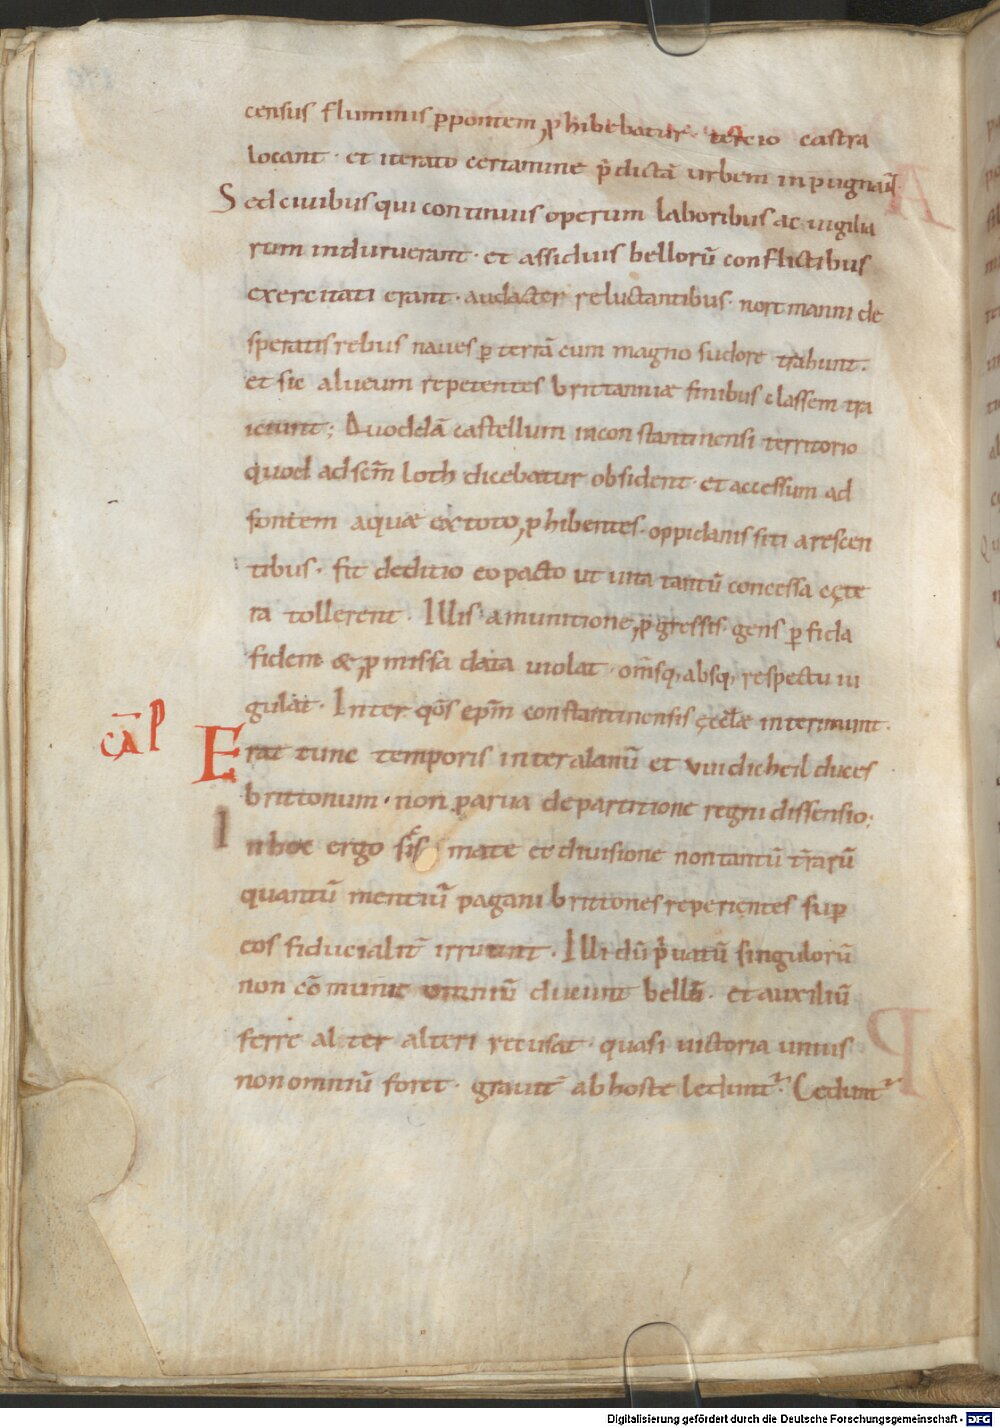 census fluminis ꝑpontem ꝓhibebatur tercio castra
locant · et iterato certamine p̄dictā urbem inpugnaꝉ
Sed ciuibus qui continuis operum laboribus ac uigilia
rum induruerant · et assiduis bellorū conflictibus
exercitati erant · audacter reluctantibus · nortmanni de
speratis rebus naues ꝑ terrā cum magno sudore trahunt ·
et sic alueum repetentes brittanniæ finibus classem tra
iciunt ; Quoddā castellum inconstantinensi territorio
quod ad scm̄ loth dicebatur obsident · et accessum ad
fontem aquæ ex toto ꝓhibentes · oppidanis siti arescen
tibus · fit deditio eo pacto ut uita tantū concessa cęte
ra tollerent · Illis a munitione ꝓgressis · gens ꝑfida
fidem & ꝓmissa data uiolat · omīsq; absq; respectu iu
gulat · Inter qōs epm̄ constantinensis ęcclæ interimunt ·
cāp
Erat tunc temporis inter alanū et vuidicheil duces
brittonum · non parua de partitione regni dissensio ·
In hoc ergo scis mate et diuisione non tantū trarū
quantū mentiū pagani brittones reperientes sup
eos fiducialit̄ irruunt · Illi dū p̄uatū singulorū
non cōmune omniū ducunt bellū · et auxiliū
ferre alter alteri recusat · quasi uictoria unius
non omniū foret · grauit̄ ab hoste leduntꝰ · Cedunt
Digitalisierung gefördert durch die Deutsche Forschungsgemeinschaft - DFG